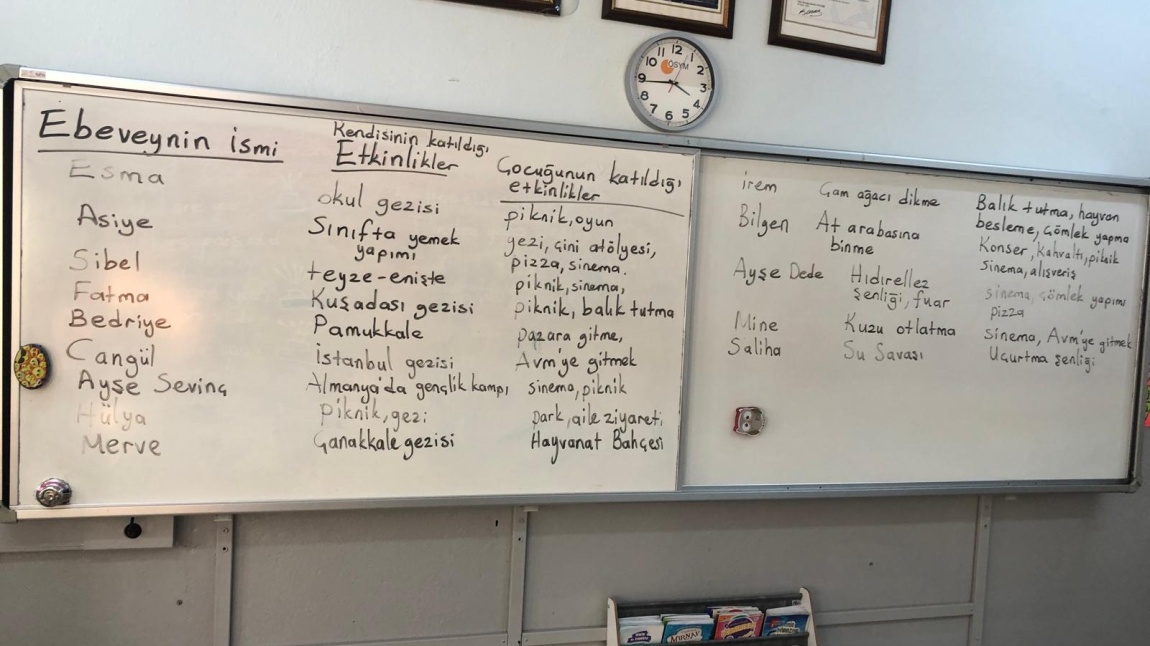 Ebeveynin ismi
Kendisinin katıldığı
Etkinlikler
Çocuğunun katıldığı
etkinlikler
Esma
okul gezisi
piknik, oyun
Asiye
Sınıfta yemek
yapımı
gezi, çini atölyesi,
pizza, sinema.
Sibel
teyze-enişte
piknik, sinema,
Fatma
Kuşadası gezisi
piknik, balık tutma
Bedriye
Pamukkale
pazara gitme,
Cangül
istanbul gezisi
Avm'ye gitmek
Ayşe Sevinç
Almanya'da gençlik kampı
sinema, piknik
Hülya
piknik, gezi
park, aile ziyareti
Merve
Çanakkale gezisi
Hayvanat Bahçesi
irem
Çam ağacı dikme
Balık tutma, hayvan
besleme, Çömlek yapma
Bilgen
At arabasına
binme
Konser, kahvaltı, piknik
sinema, alışveriş
Ayşe Dede
Hıdırellez
şenliği, fuar
sinema, çömlek yapımı
pizza
Mine
Kuzu otlatma
sinema, Avm'ye gitmek
Saliha
Su Savaşı
Uçurtma şenliği
ÖSYM
12
1
2
3
4
5
6
7
8
9
10
11